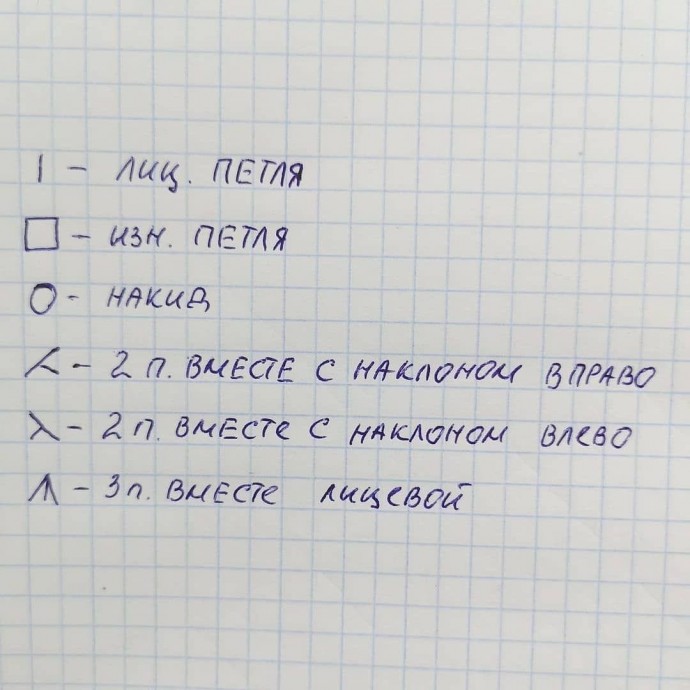 | - ЛИЦ. ПЕТЛЯ
□ - ИЗН. ПЕТЛЯ
O - НАКИД
⋌ - 2 П. ВМЕСТЕ С НАКЛОНОМ ВПРАВО
λ - 2 П. ВМЕСТЕ С НАКЛОНОМ ВЛЕВО
⩚ - 3 П. ВМЕСТЕ ЛИЦЕВОЙ